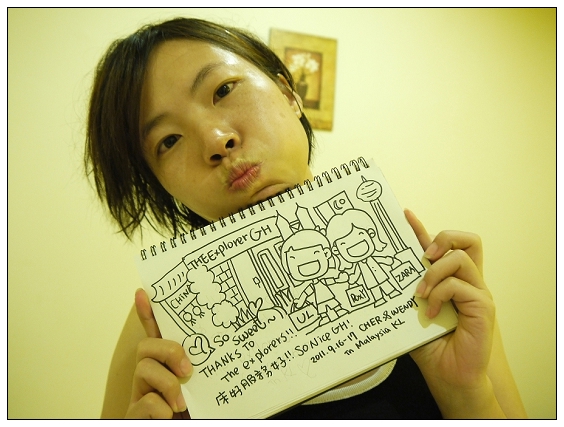 THE Explorer GH
CHIN
UL
ROXY
ZARA
So sweet~
THANKS TO
The explorers!!
床好服務好!! So Nice GH!
2011.9.16-17 CHER & WENDY
In Malaysia KL